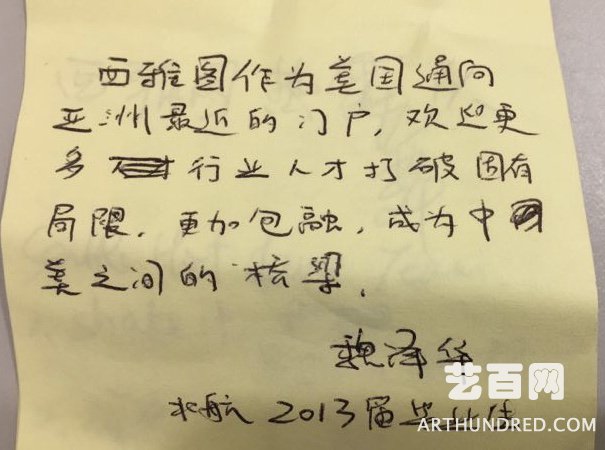 西雅图作为美国通向
亚洲最近的门户,欢迎更
多行业人才打破固有
局限,更加包融,成为中
美之间的桥梁,
魏泽华
北航 2013届毕业生
艺百网
ARTHUNDRED.COM